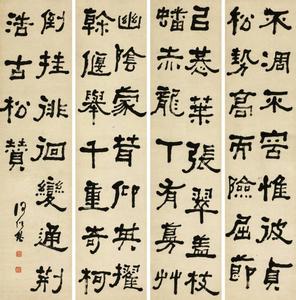 不凋不容惟彼貞
松勢高而險屈節
㠯恭葉張翠蓋枝
蟠赤龍丅有蔓艸
幽陰蒙茸仰其擢
榦偃舉千重奇柯
倒挂徘徊變通荊
浩古松贊
何紹基